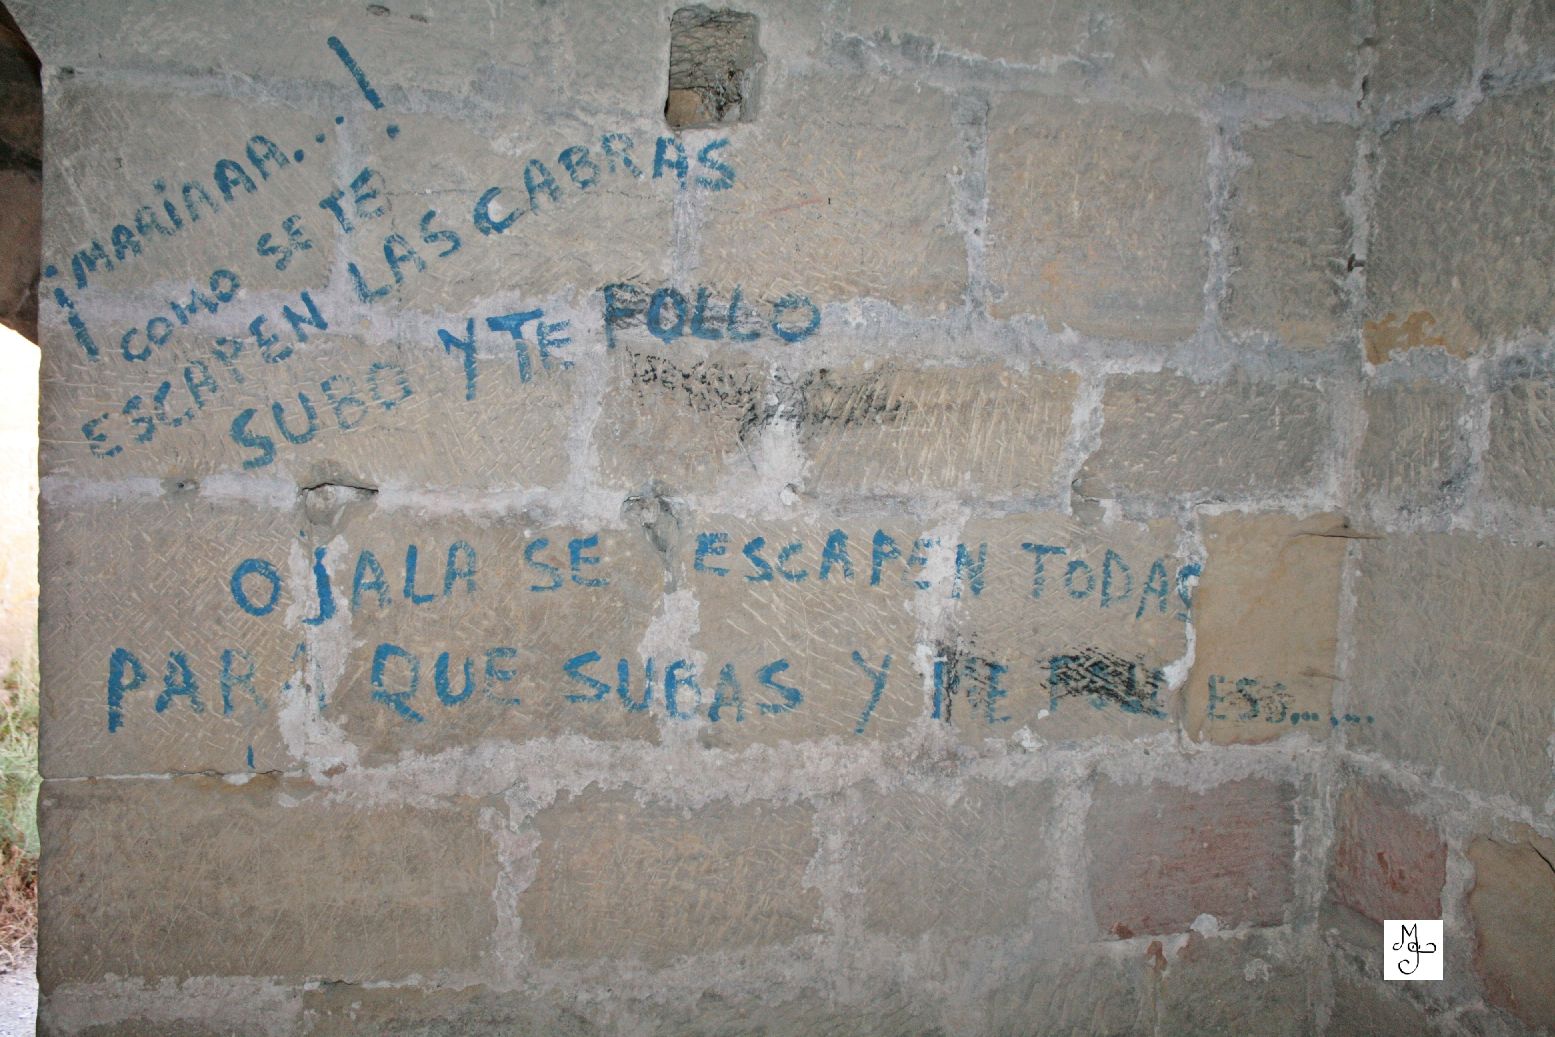 ¡MARÍAAA...!
COMO SE TE
ESCAPEN LAS CABRAS
SUBO Y TE FOLLO
OJALA SE ESCAPEN TODAS
PARA QUE SUBAS Y TE